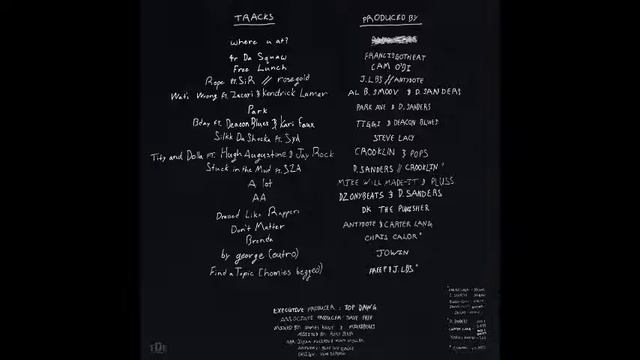 TRACKS
PRODUCED BY
where u at?
4r Da Squaw
FRANCISGOTHEAT
Free Lunch
CAM O'BI
Rope ft. SiR // rosegold
J.LBS // ANTYDOTE
Wat's Wrong ft. Zacari & Kendrick Lamar
AL B. SMOOV & D. SANDERS
Park
PARK AVE & D. SANDERS
Bday ft. Deacon Blues & Kari Faux
TIGGI & DEACON BLUES
Silkk Da Shocka ft. Syd
STEVE LACY
Tity and Dolla ft. Hugh Augustine & Jay Rock
CROOKLIN & POPS
Stuck in the Mud ft. SZA
D. SANDERS // CROOKLIN *
A lot
MIKE WILL MADE-IT & PLUSS
AA
DZONYBEATS & D. SANDERS
Dressed Like Rappers
DK THE PUNISHER
Don't Matter
ANTYDOTE & CARTER LANG
Brenda
CHRIS CALOR *
by george (outro)
JOWIN
Find a Topic (homies begged)
FREE P & J. LBS *
EXECUTIVE PRODUCER: TOP DAWG
ASSOCIATE PRODUCER: DAVE FREE
TDE